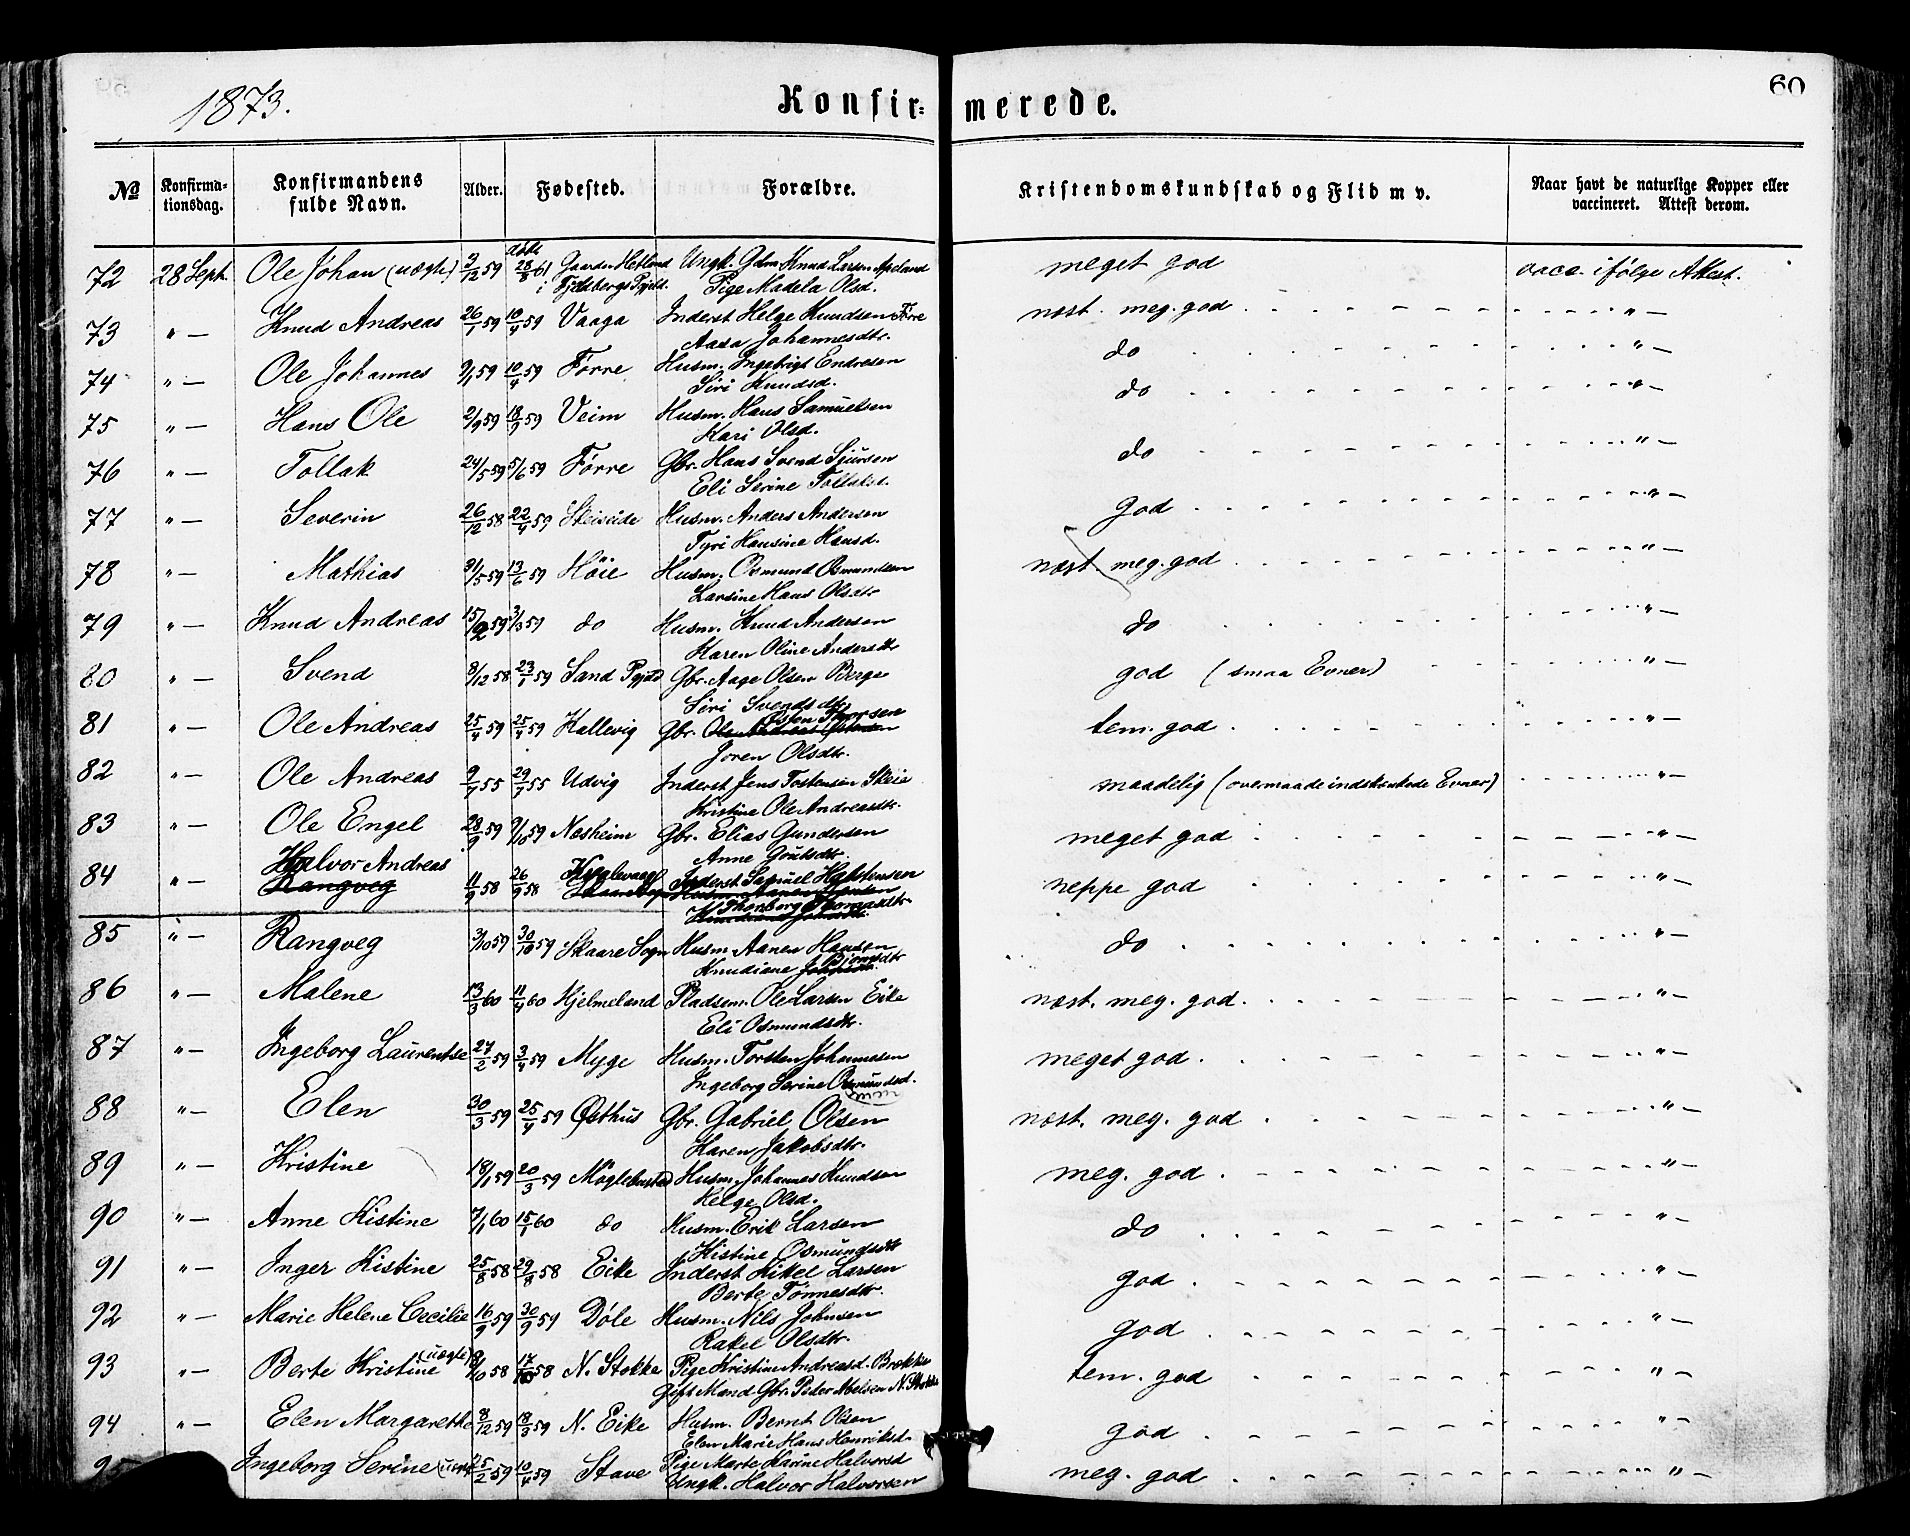 1873.
Konfir=merede.
60
No Konfirmationsdag. Konfirmandens fulde Navn. Alder. Fødested. Forældre. Kristendomskundskab og Flid m v. Naar havt de naturlige Kopper eller vaccineret. Attest derom.
72 28 Sept. Ole Johan (uægte) 3/12 59 døbt 28/8 61 Gaarden Hetland Ungk. Gdm Knud Larsen meget god vacc. ifølge Attest.
i Pgjeld. Pige Madela Olsd.
73 " — Knud Andreas 26/1 59 10/4 59 Vaaga Inderst Helge Knudsen Førre næst. meg. god " —
Aasa Johannesdtr.
74 " — Ole Johannes 9/1 59 10/4 59 Førre Husm. Ingebrigt Endresen do " —
Siri Knudsd.
75 " — Hans Ole 2/9 59 18/9 59 Veim Husm. Hans Samuelsen do " —
Kari Olsd.
76 " — Tollak 24/5 59 5/6 59 Førre Gbr. Hans Svend Sjursen do " —
Eli Serine
77 " — Severin 26/12 58 22/4 59 Husm. Anders Andersen god " —
Tyri Hansine Hansd.
78 " — Mathias 31/5 59 13/6 59 Høie Husm. Osmund Osmundsen næst meg. god " —
Larsine Hans Olsdtr
79 " — Knud Andreas 15/2 59 3/3 59 do Husm. Knud Andersen do " —
Karen Oline Andersdtr
80 " — Svend 8/12 58 23/1 59 Sand Pgjeld Gbr. Aage Olsen Berge god (smaa Evner) " —
Siri Svendsdtr
81 " — Ole Andreas 25/4 59 25/4 59 Kallevig Gbr. Thorsen tem. god " —
Joren Olsdtr.
82 " — Ole Andreas 9/7 55 29/7 55 Udvig Inderst Jens Tostensen Skeie maadelig (overmaade indskrænkede Evner) " —
Kristine Ole Andreasdtr.
83 " — Ole Engel 28/9 59 9/10 59 Nesheim Gbr. Elias Gundersen meget god " —
Anne Goutsdtr.
84 " — Halvor Andreas 11/9 58 26/9 58 Inderst Samuel neppe god " —
Rangveg
Thorborg Thomasdtr.
85 " — Rangveg 3/10 59 30/10 59 Skaare Sogn Husm. Aanen Hansen do " —
Knudiane
86 " — Malene 13/3 60 11/4 60 Hjelmeland Pladsem. Ole Larsen Eike næst. meg. god. " —
Eli Osmundsdtr.
87 " — Ingeborg Laurentse 27/2 59 3/4 59 Myge Husm. Torsten Johannesen meget god " —
Ingeborg Serine Osmundsd.
88 " — Elen 30/3 59 25/4 59 Østhus Gbr. Gabriel Olsen næst. meg. god " —
Karen Jakobsdtr.
89 " — Kristine 18/1 59 20/3 59 Møglebustad Husm. Johannes Knudsen meg. god " —
Helge Olsd.
90 " — Anne Kistine 7/1 60 15/1 60 do Husm. Erik Larsen do " —
Kistine Osmundsdtr
91 " — Inger Kistine 25/8 58 29/8 58 Eike Inderst Mikel Larsen god " —
Berte Tønnesdtr.
92 " — Marie Helene Cecilie 16/9 59 30/9 59 Døle Husm. Nils Johnsen god " —
Rakel Olsdtr.
93 " — Berte Kristine (uægte) 9/10 58 17/10 58 N. Stokke Pige Kristine Andreasd. tem. god " —
Gift Mand Gbr. Peder N. Stokke
94 " — Elen Margarethe 8/12 59 18/3 59 N. Eike Husm. Bernt Olsen god " —
Elen Marie Hans Henriksd.
95 Ingeborg Serine 25/2 59 10/4 59 Stave Pige Marte Karine Halvorsd meg. god " —
Ungk. Halvor Halvorsen